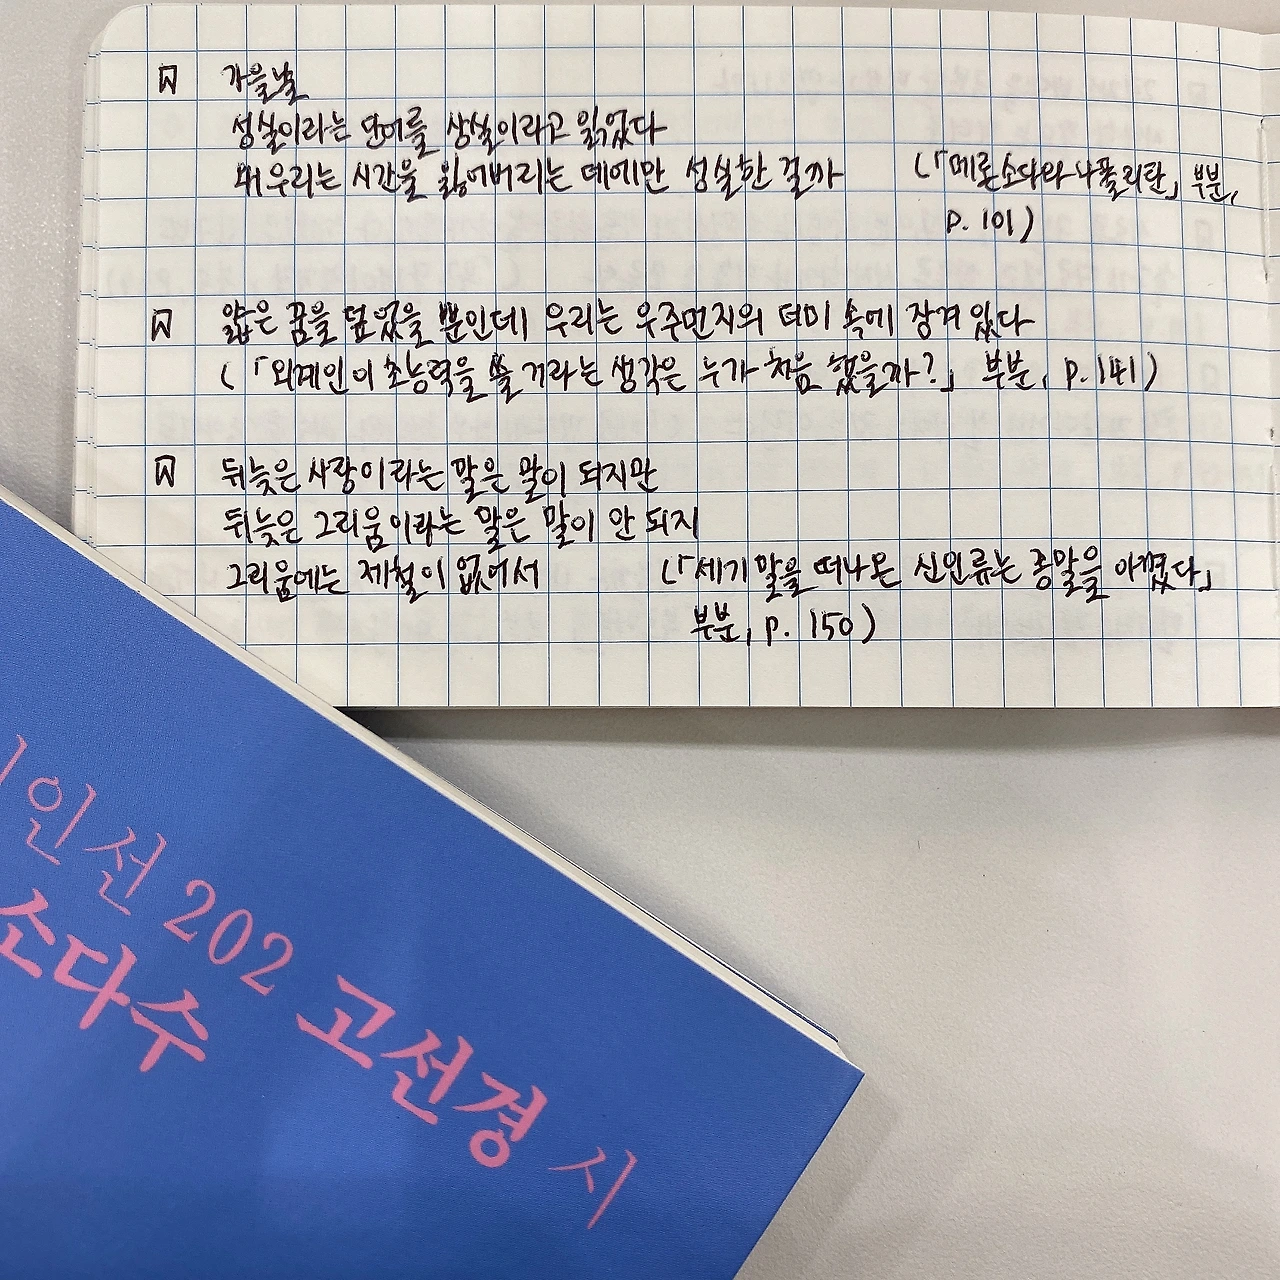 가을날
성실이라는 단어를 상실이라고 읽었다
왜 우리는 시간을 잃어버리는 데에만 성실한 걸까 (「메론소다와 나폴리탄」 부분,
p. 101)
얇은 꿈을 덮었을 뿐인데 우리는 우주먼지의 더미 속에 잠겨 있다
(「외계인이 초능력을 쓸 거라는 생각은 누가 처음 했을까?」 부분, p. 141)
뒤늦은 사랑이라는 말은 말이 되지만
뒤늦은 그리움이라는 말은 말이 안 되지
그리움에는 제철이 없어서 (「세기말을 떠나온 신인류는 종말을 아꼈다」
부분, p. 150)
인선 202 고선경 시
소다수